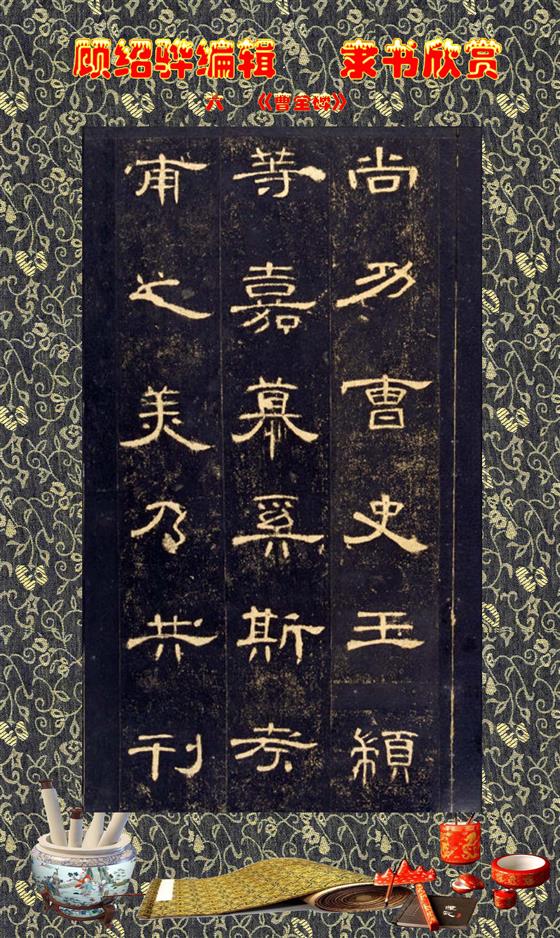 顾绍骅编辑 隶书欣赏
六 《曹全碑》
尚功曹史王颖
等嘉慕奚斯考
甫之美乃共刊